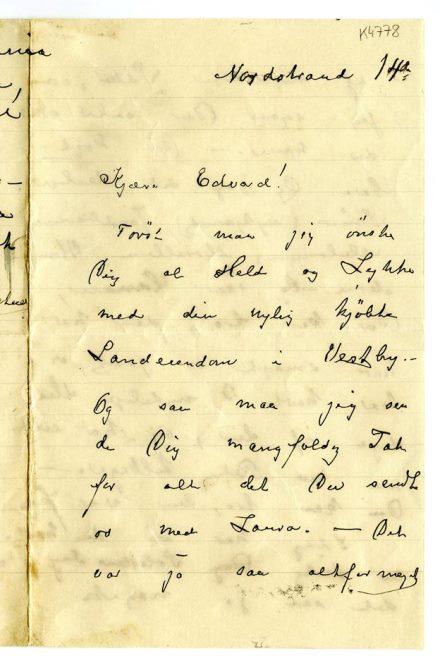 K4778
Nordstrand 14de
Kjære Edvard!
Først maa jeg ønske
Dig al Held og Lykke
med din nylig kjøbte
Landeiendom i Vestby.-
Og saa maa jeg sen
de Dig mangfoldig Tak
for alt det Du sendte
os med Laura. — Det
var jo saa altfor meget